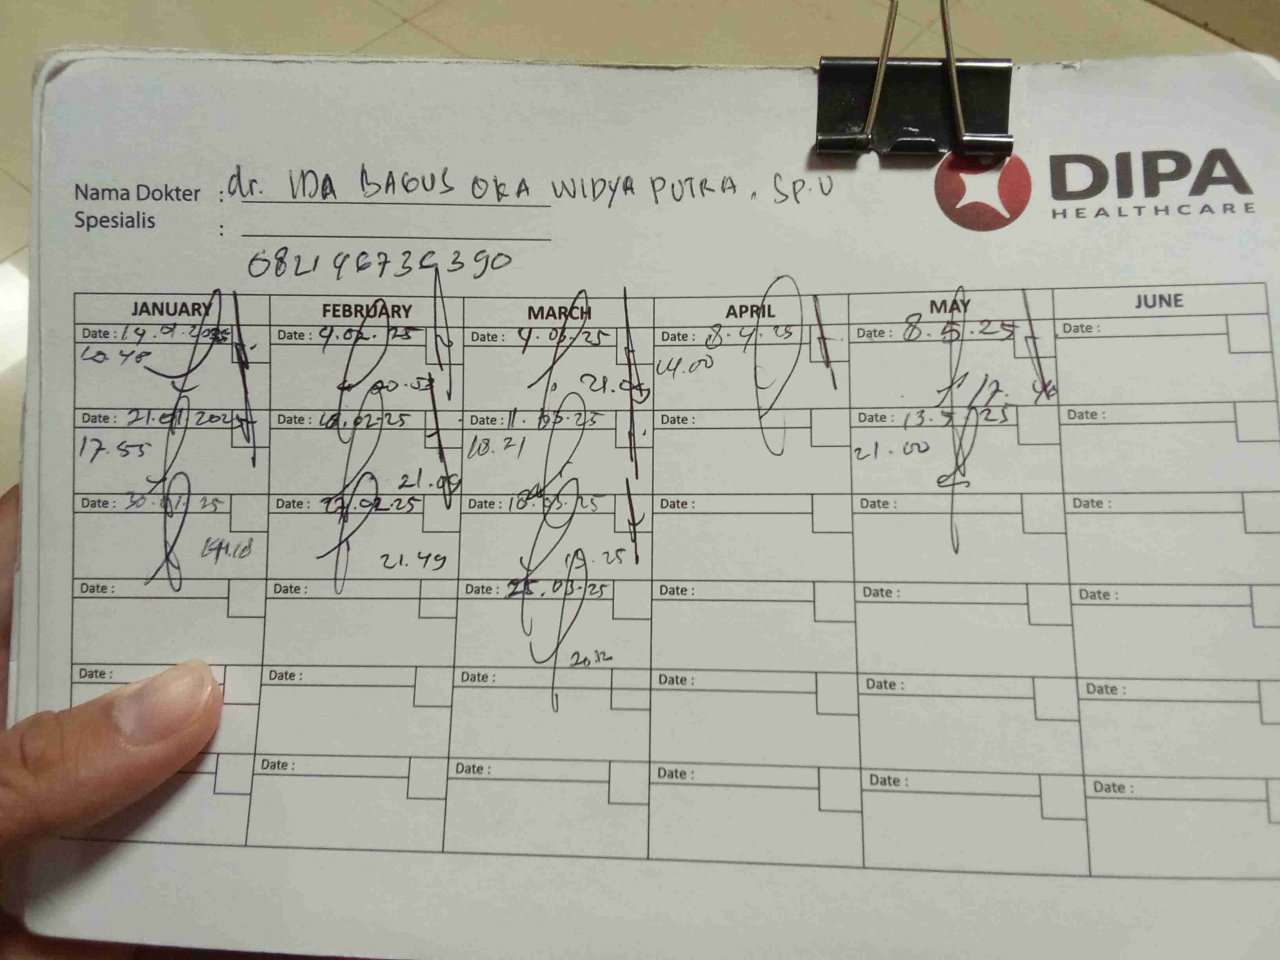 DIPA
HEALTHCARE
Nama Dokter : dr. IDA BAGUS OKA WIDYA PUTRA. SP.U
Spesialis :
JANUARY FEBRUARY MARCH APRIL MAY JUNE
Date : 14.01.2025 Date : 4.02.25 Date : 4.03.25 Date : 8.4.25 Date : 8.5.25 Date :
14.00
Date : 21.01.2025 Date : Date : 11.03.25 Date : Date : 13.5.25 Date :
17.55 18.21 21.00
21.09
Date : 30.01.25 Date : 27.02.25 Date : Date : Date : Date :
21.49 19.25
Date : Date : Date : 25.03.25 Date : Date : Date :
Date : Date : Date : Date : Date : Date :
Date : Date : Date : Date : Date :